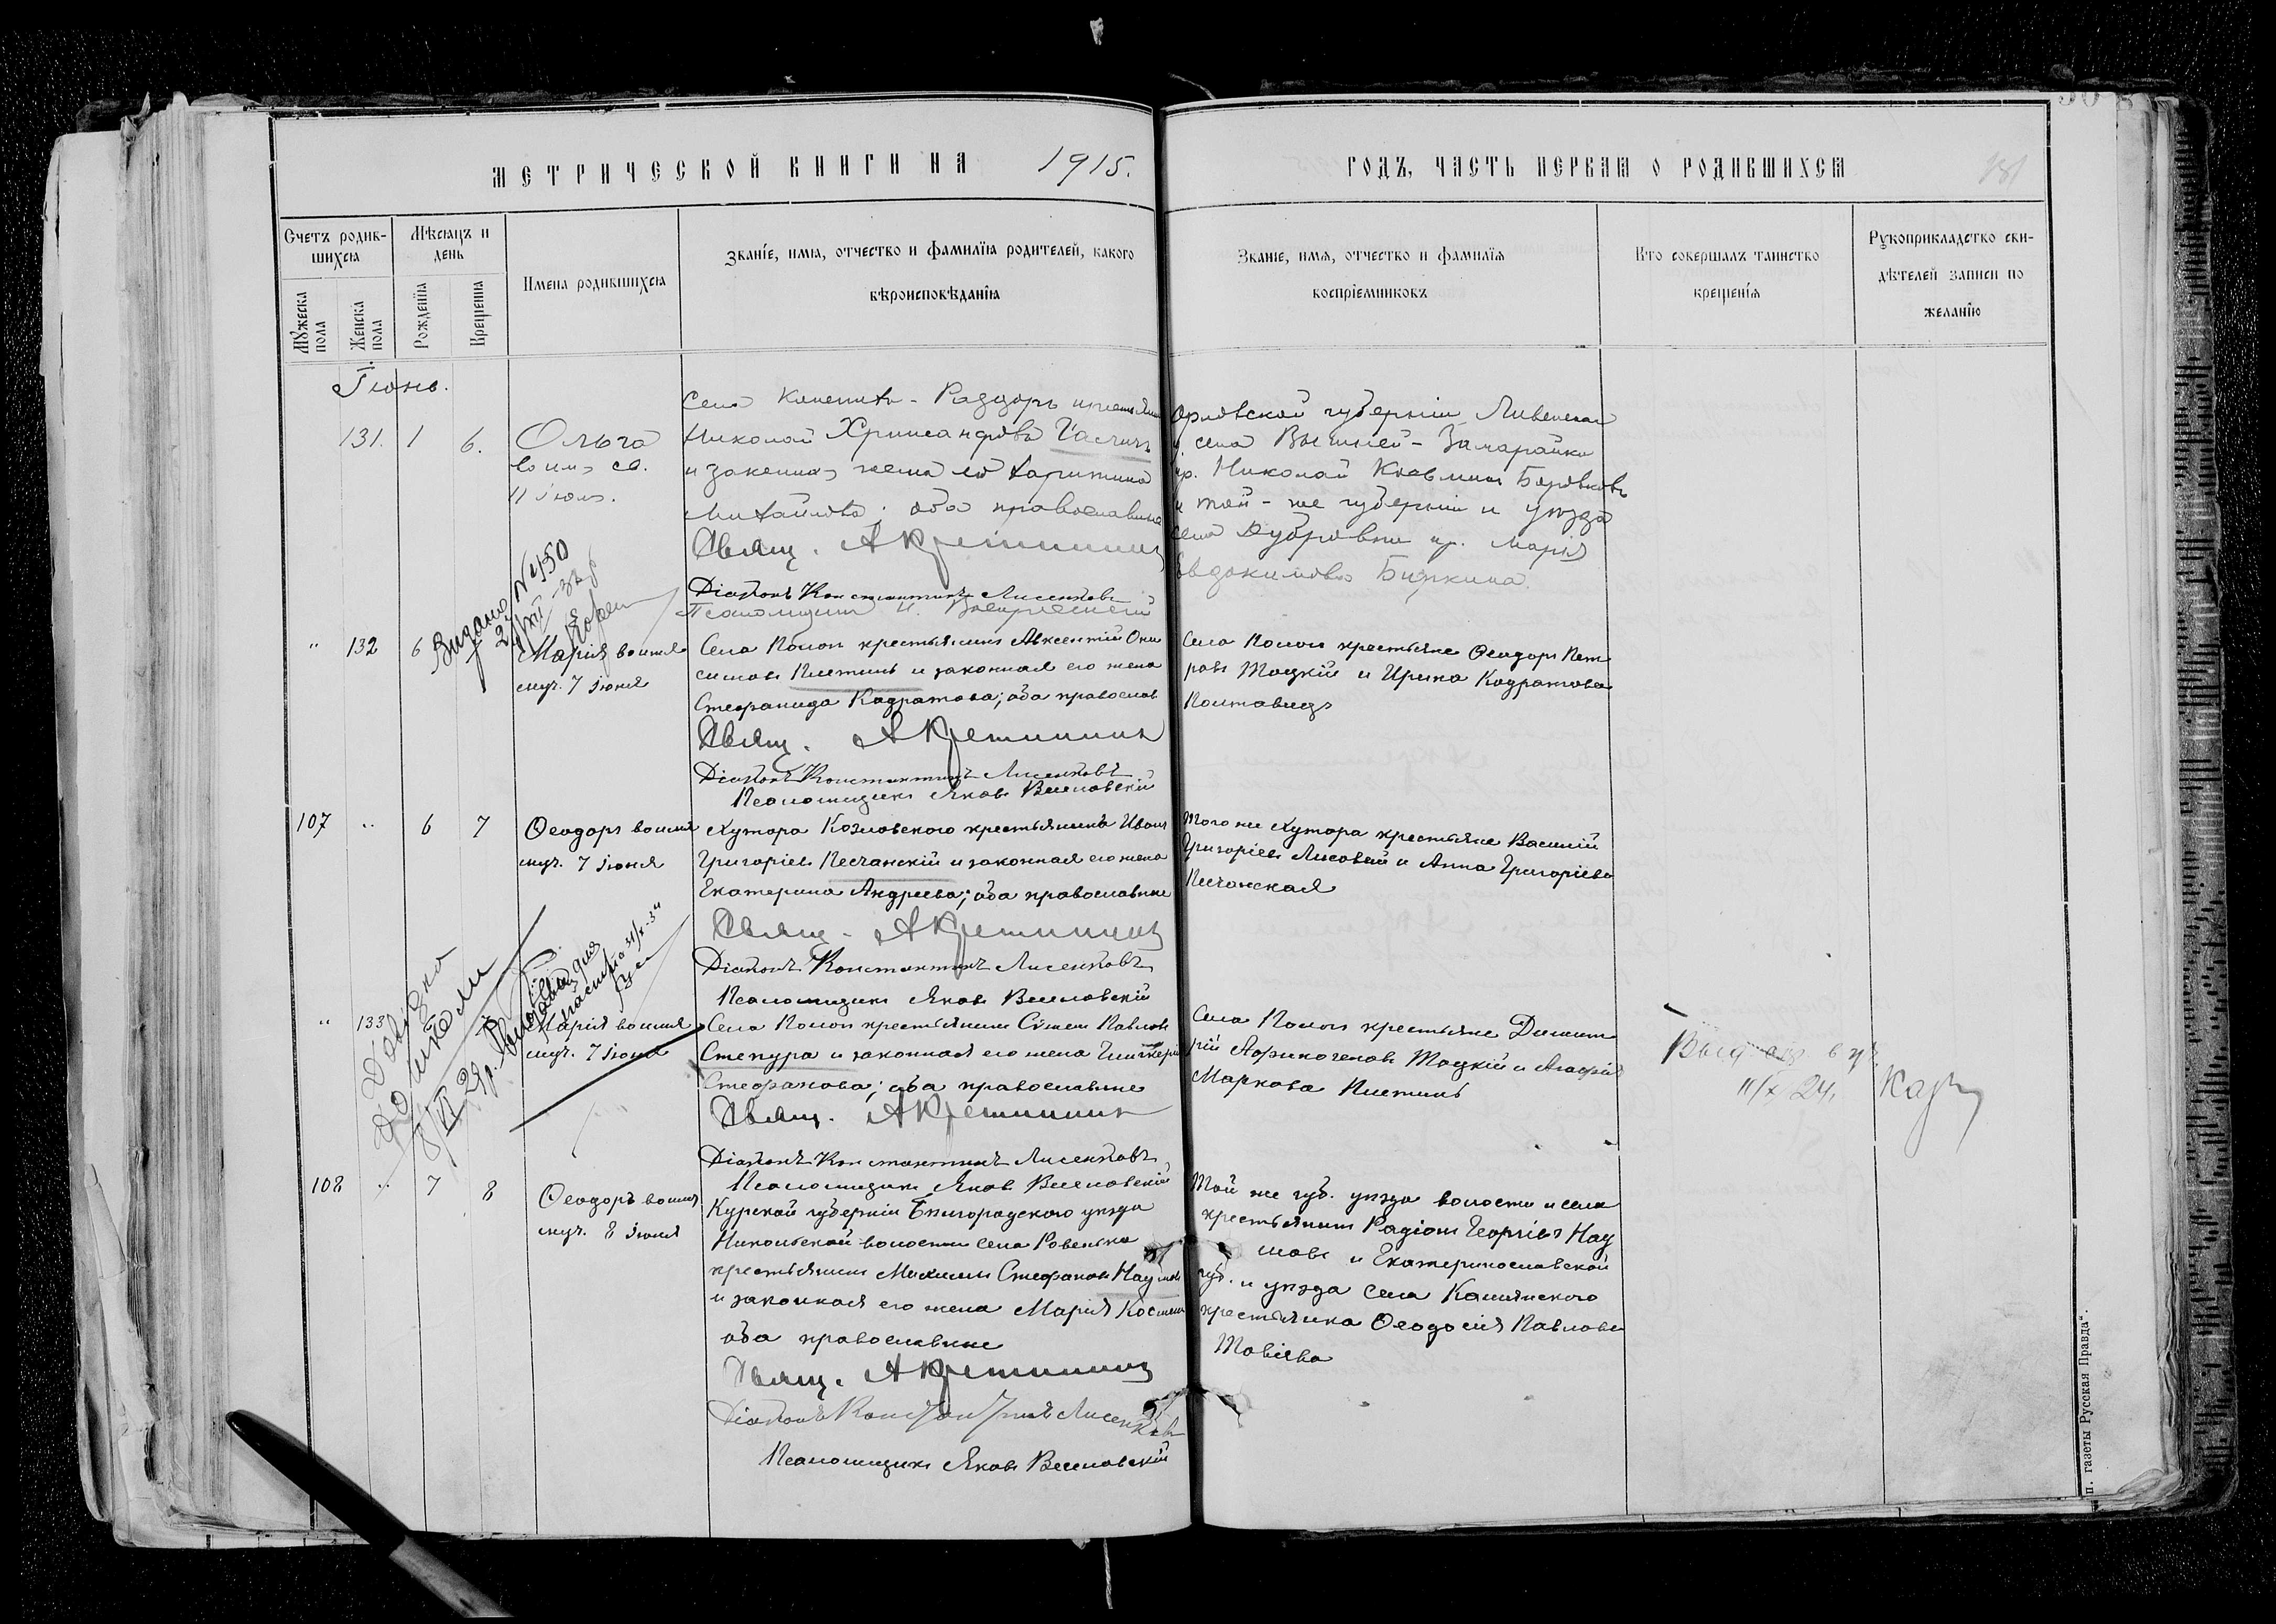 МЕТРИЧЕСКОЙ КНИГИ НА 1915.
ГОДЪ, ЧАСТЬ ПЕРВАЯ О РОДИВШИХСЯ
181
Счетъ родив-
шихся
Мѣсяцъ и
день
Мужеска
пола
Женска
пола
Рожденія
Крещенія
Имена родившихся
Званіе, имя, отчество и фамилія родителей, какого
вѣроисповѣданія
Званіе, имя, отчество и фамилія
воспріемниковъ
Кто совершалъ таинство
крещенія
Рукоприкладство сви-
дѣтелей записи по
желанію
Іюнь.
131. 1 6. Ольга
во имя св.
11 Іюля.
Села Раздоръ
Николай Хрисанфовъ
и законная жена его Харитина
Михайлова; оба православные
Свящ. А Кретининъ
Діаконъ Константинъ Лисенковъ
Псаломщикъ
Орловской губерніи Ливенска
села Вышней-
кр. Николай Косьминъ Боровковъ
и той-же губерніи и уѣзда
села Дубровки кр. Марія
Евдокимова Бизкина.
Видано №450
" 132 6
Марія во имя
муч. 7 Іюня
Села Попон крестьянинъ Авксентій Они
симовъ Плетинь и законная его жена
Стефанида Кодратова; оба православ
Свящ. А Кретининъ
Діаконъ Константинъ Лисенковъ
Псаломщикъ Яковъ Веселовскій
Села Попон крестьяне Ѳеодоръ Пет
ровъ Тоцкій и Ирина Кодратова
Полтавецъ
107 " 6 7 Ѳеодоръ во имя
муч. 7 Іюня
Хутора Козловского крестьянинъ Иванъ
Григоріевъ Песчанскій и законная его жена
Екатерина Андреева; оба православные
Свящ. А Кретининъ
Діаконъ Константинъ Лисенковъ
Псаломщикъ Яковъ Веселовскій
Того же Хутора крестьяне Василій
Григоріевъ Лисовый и Анна Григоріева
Песчанская
" 133
Марія во имя
муч. 7 Іюня
Села Попон крестьянинъ Сѵмеон Павловъ
Степура и законная его жена Гликерія
Стефанова; оба православные
Свящ. А Кретининъ
Діаконъ Константинъ Лисенковъ
Псаломщикъ Яковъ Веселовскій
Села Попон крестьяне Димит
рій Аѳиногеновъ Тоцкій и Агафія
Маркова Плетинь
11/X 24,
108 " 7 8 Ѳеодоръ во имя
муч. 8 Іюня
Курской губерніи Бѣлгородского уѣзда
Никольской волости села Ровенька
крестьянинъ Стефановъ Наумов
и законная его жена Марія Косьмин
оба православные
Свящ. А Кретининъ
Діаконъ Константинъ Лисенковъ
Псаломщикъ Яковъ Веселовскій
Той же губ. уѣзда волости и села
крестьянинъ Радіонъ Георгіевъ Нау
мовъ и Екатеринославской
губ. и уѣзда села Каменского
крестьянка Ѳеодосія Павлова
п. газеты „Русская Правда".